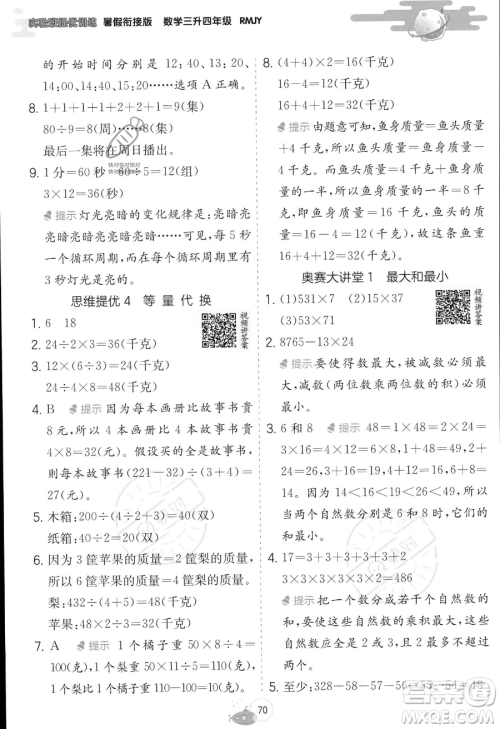 实验班提优训练 暑假衔接版 数学三升四年级 RMJY
的开始时间分别是12:20、12:40、13:
20,14:00,14:40、15:20,…,选项A正确。
8. 1+1+1+1+2+2+1=9(集)
80÷9=8(周)……8(集)
最后一集将在周日播出。
9. 1分=60秒 60÷5=12(组)
3×12=36(秒)
提示 灯光亮暗的变化规律是:亮暗亮
亮暗亮暗亮亮暗……依次类推,5秒为
一个循环周期,而在每个循环周期里有3
秒灯光是亮的。
思维提优4 等量代换
视频讲答案
1. 6 18
2. 24÷2×3=36(千克)
3. 12×(6÷3)=24(千克)
24÷(4÷2)=12(千克)
4. B 提示 因为每本画册比故事书贵
8元,所以4本画册比4本故事书贵
4×8=32(元)。假设买的全部是故事
书,则每本故事书(221-32)÷(3+4)=
27(元)。
5. 木箱:200÷(4÷2+3)=40(双)
纸箱:200÷(2×3+4)=20(双)
6. 因为3筐苹果的质量=2筐梨的质量,
所以6筐苹果的质量=4筐梨的质量。
梨:432÷(4+5)=48(千克)
苹果:48×2÷3=32(千克)
7. A 提示 1个橘子重50×8÷4=
100(克),1个梨重50×4=200(克),
1个梨比1个橘子重200-100=100(克)。
8. 鱼身:(4×2+4)÷(2-1)+4=
16(千克)
鱼头:16-4=12(千克)
32+16+4=32(千克)
提示 由题意可知,鱼身质量=鱼头质
量+4千克,鱼头质量=4千克+鱼身质
量的一半,所以鱼身质量=4千克+鱼身
质量的一半+4千克,即鱼身质量=8千
克+鱼身质量的一半,所以鱼身质量的
一半是8千克。
奥赛大讲堂1 最大和最小
视频讲答案
1. (1)531×7 (2)15×37
(3)951×73
2. 8765-13×24
提示 要使得数最大,被减数必须最
大,减数(两位数乘两位数的积)必须
最小。
3. 6和8 提示 48=1×48=2×24=
3×16=4×12=6×8,48+1>24+
2>16+3>12+4>8+6,所以这两个
自然数是6和8。
4. 17=3+3+3+3+3+2
3×3×3×3×3×2=486
提示 将一个数拆成若干个自然数的
和,要使这若干个自然数的乘积最大,
应该使这若干个自然数中有尽可能多
的3。
5. 至少:328-58-57-56-55-54=
70